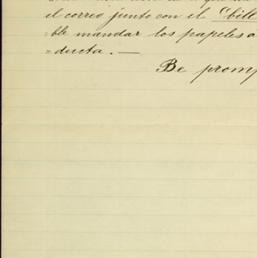 el correo junto con el
=ble mandar los papeles a
=ducta. —
Be promp